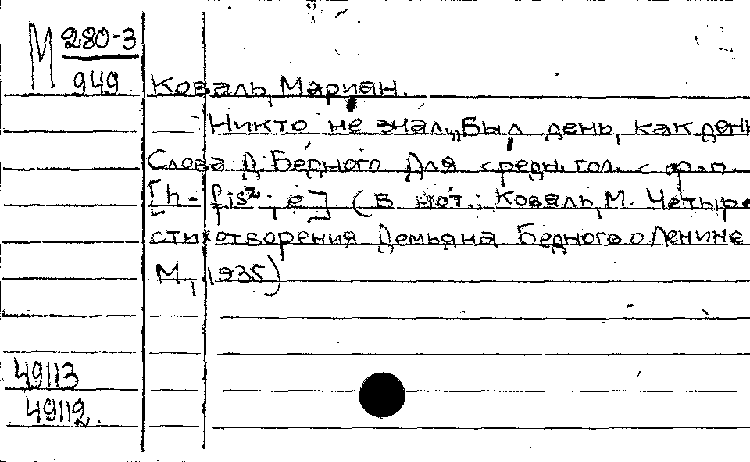 М 280-3
949 Коваль, Мариан.
Никто не знал, „Был день, как день
Слова Д. Бедного Для средн. гол. с ф-п
[h - fis²; e] (В нот.: Коваль, М. Четыре
стихотворения Демьяна Бедного о Ленине
М., 1935)
49113
49112.